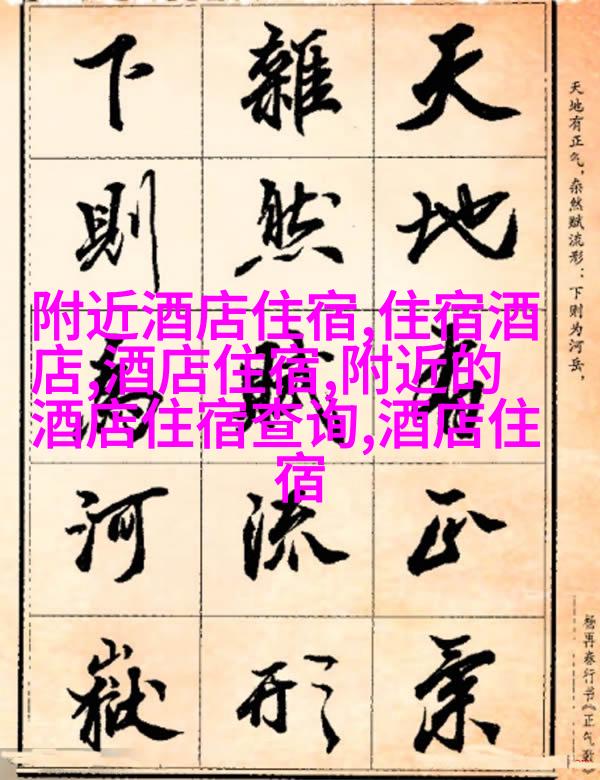 天地有正氣
雜然賦流形
下則為河嶽
天地有正气，杂然赋流形：下则为河岳，
杨再春行书《正气歌》
附近酒店住宿,住宿酒
店,酒店住宿,附近的
酒店住宿查询,酒店住
宿